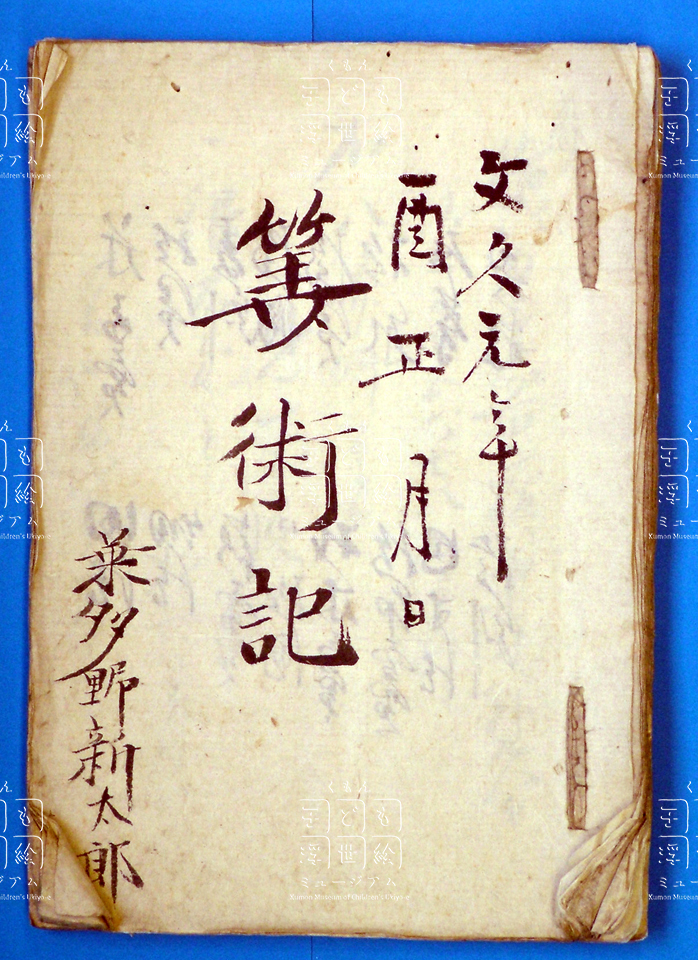 文久元年
酉正月日
筭術記
葉多野新太郎
くもん
子ども
浮世絵
ミュージアム
Kumon Museum of Children's Ukiyo-e